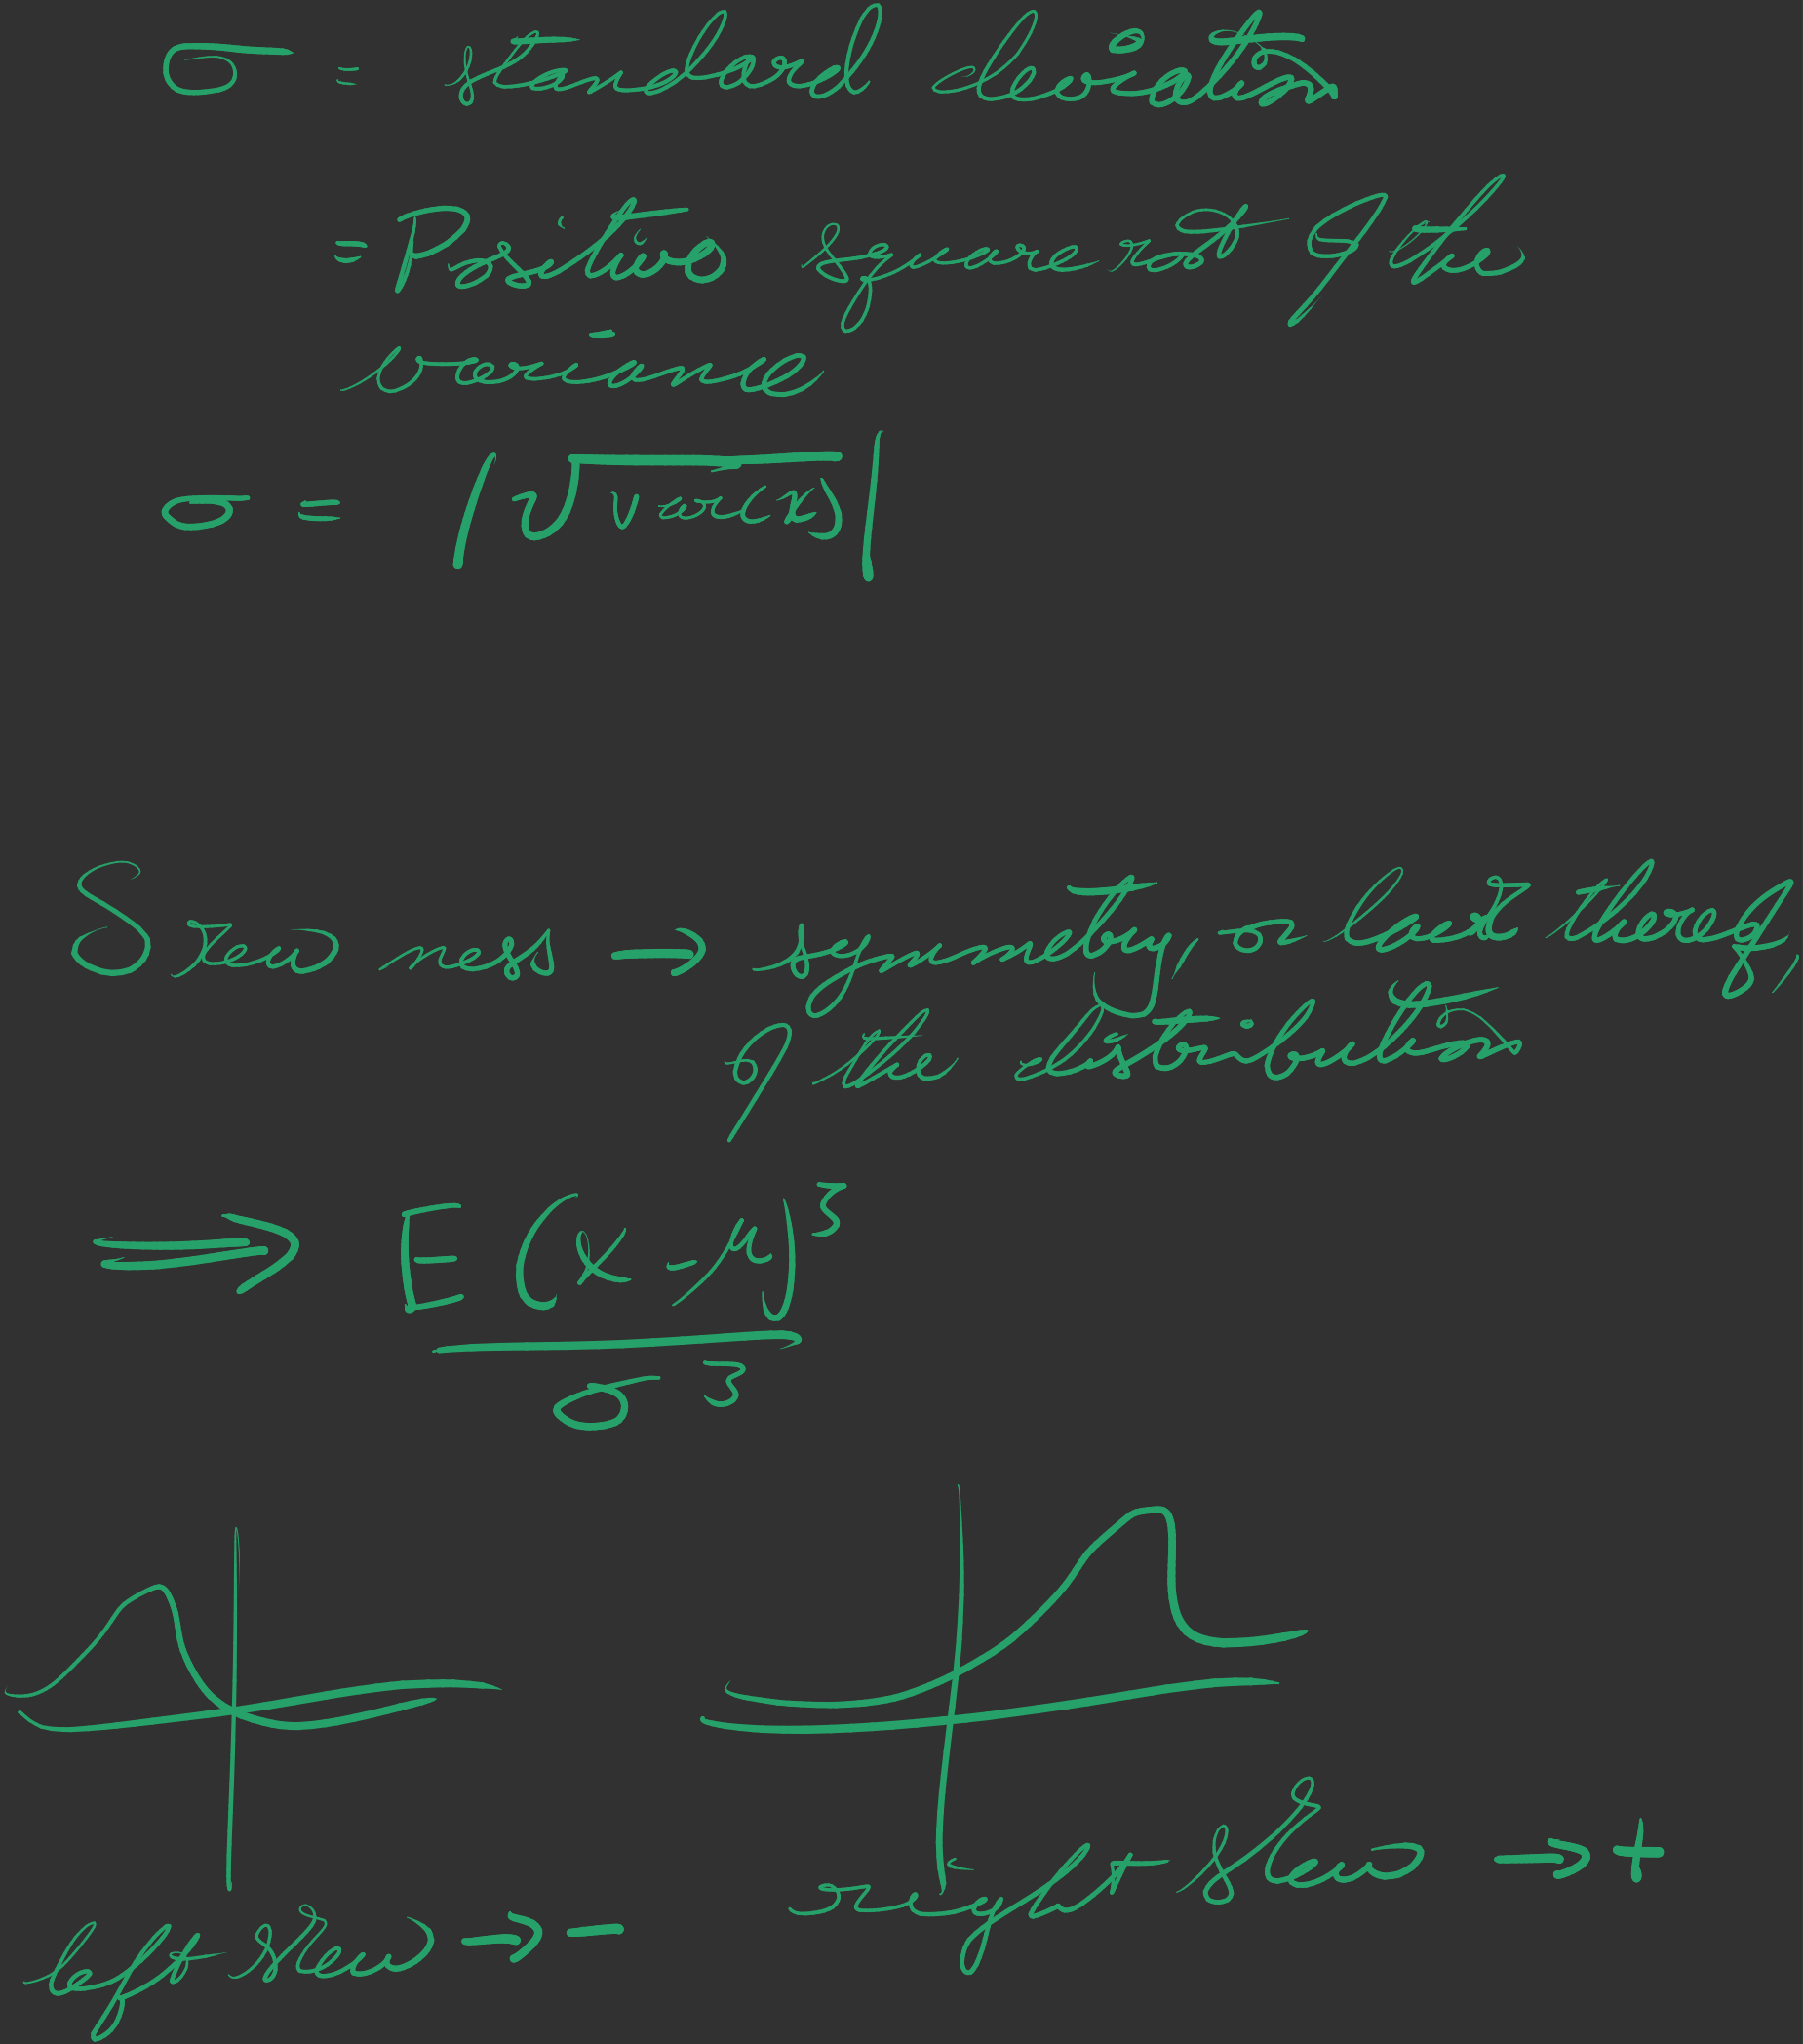 σ = standard deviation
= Positive square root of the
variance
σ = |√Var(x)|
Skewness → symmetry, or lack thereof,
of the distribution
⇒ E(x - μ)³
σ³
right skew → +
left skew → -